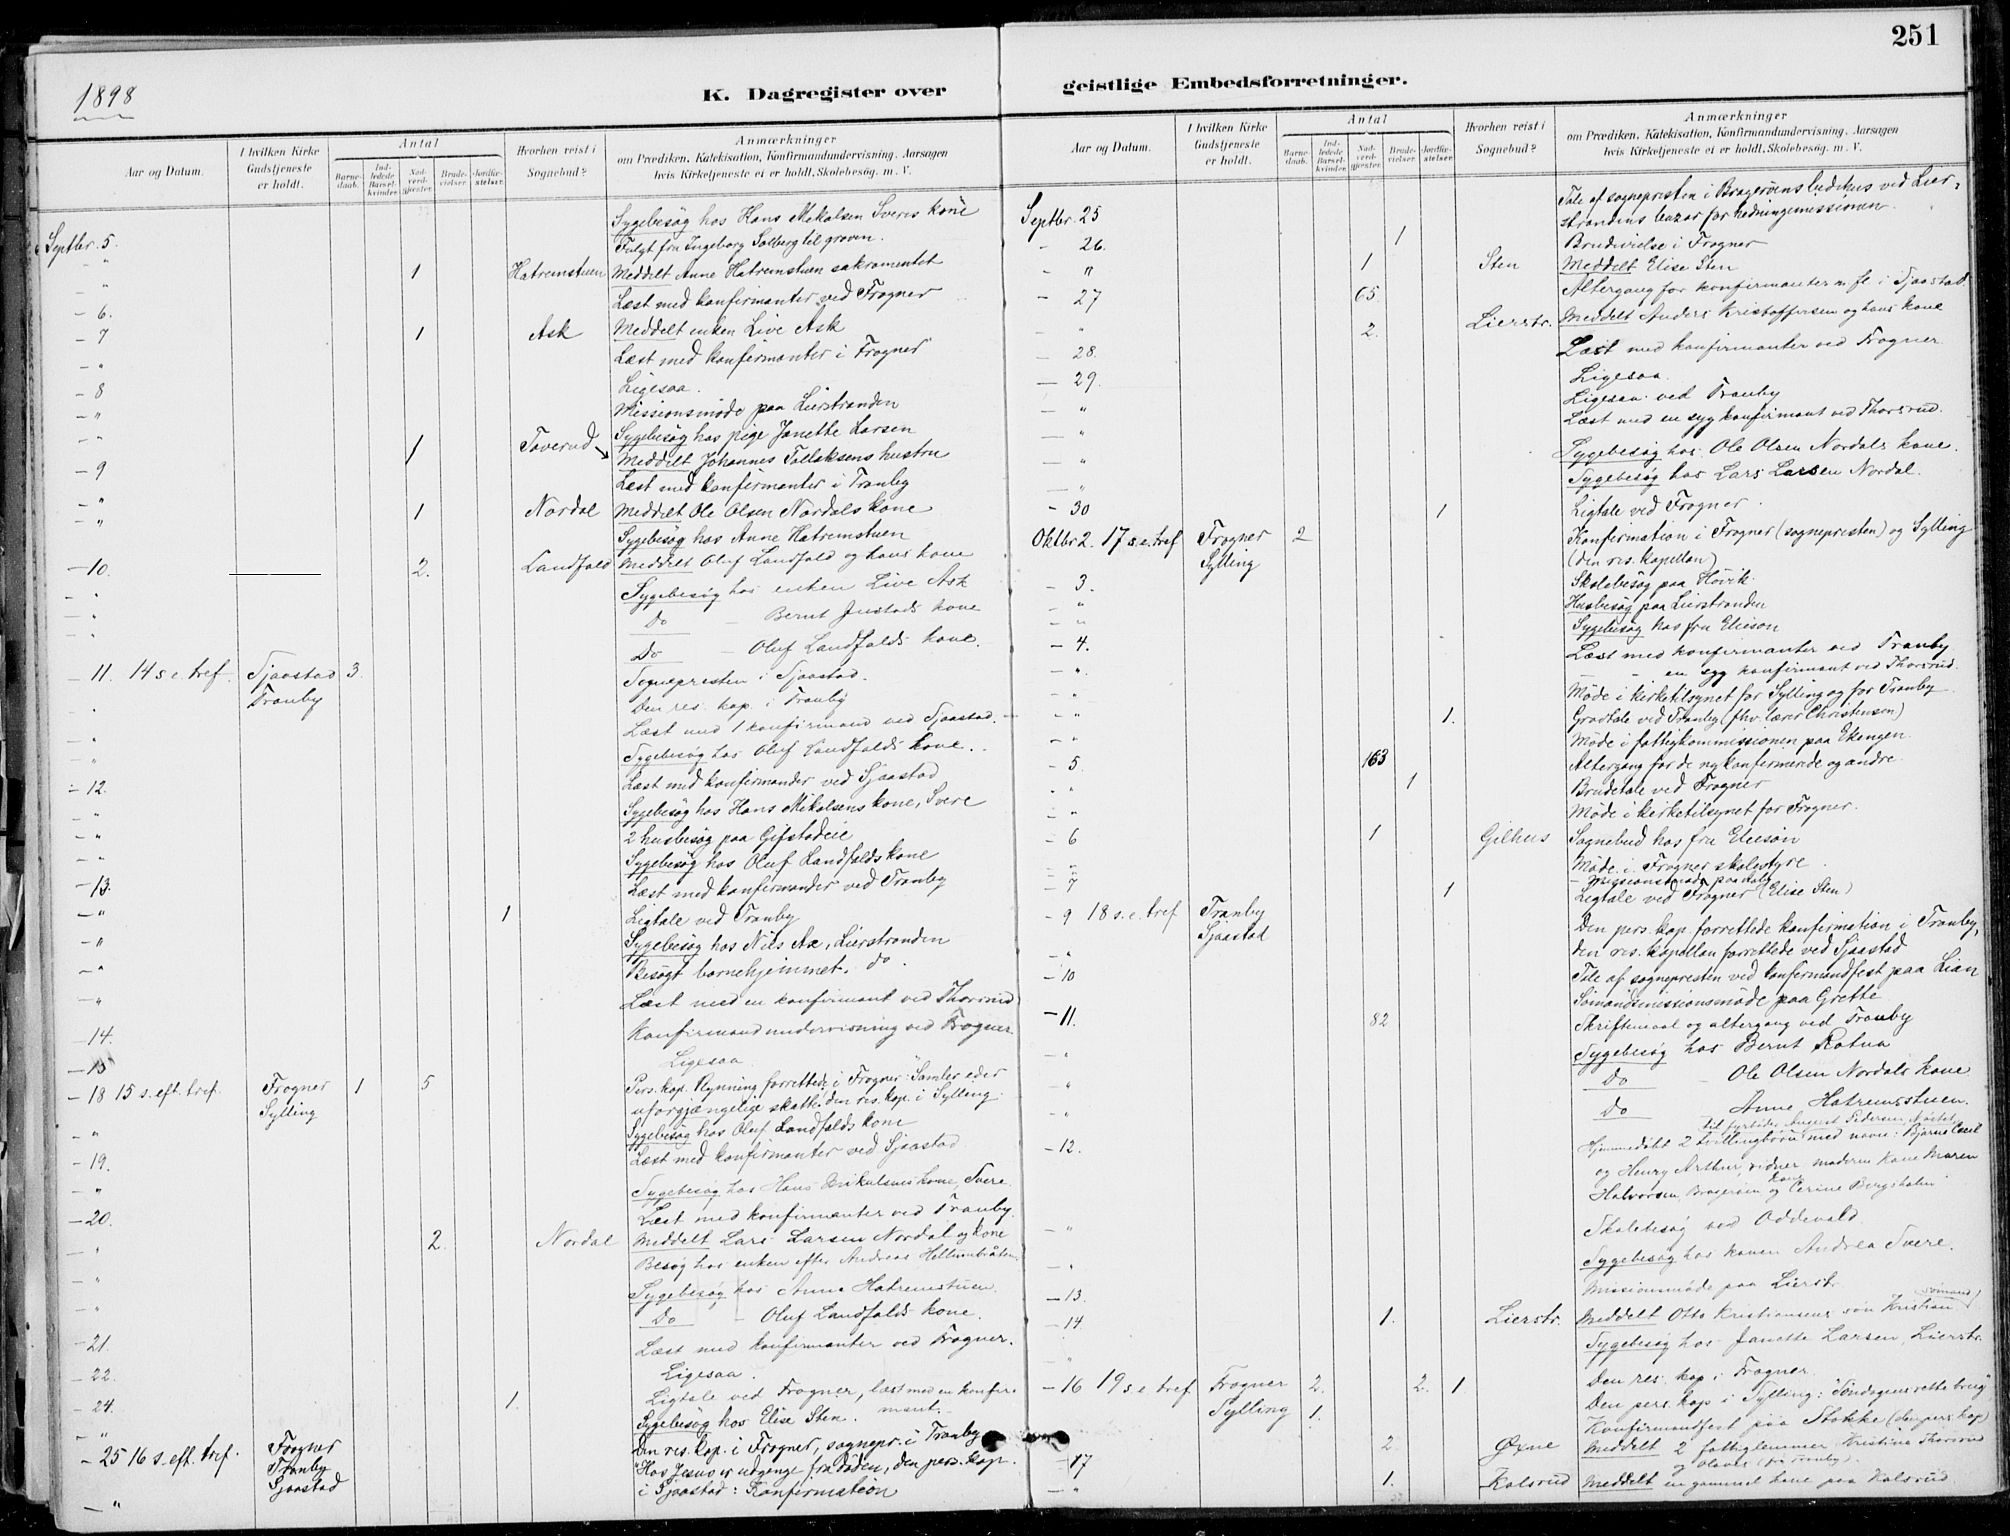 251
1898
K. Dagregister over geistlige Embedsforretninger.
Aar og Datum. I hvilken Kirke Gudstjeneste er holdt. Antal Barnedaab. Indledede Barselkvinder. Nadverdgjester. Brudevielser. Jordfæstelser. Hvorhen reist i Sognebud? Anmærkninger om Prædiken, Katekisation, Konfirmandundervisning, Aarsagen hvis Kirketjeneste ei er holdt, Skolebesøg, m. V.
Septbr. 5. Sygebesøg hos Hans Mikalsen Sveres kone
" Fulgt fru Ingeborg Solberg til graven.
" 1 Hatremstuen Meddelt Anne Hatremstuen sakramentet
- 6. Læst med konfirmanter ved Frogner
- 7 1 Ask Meddelt enken Live Ask
" Læst med konfirmanter i Frogner
- 8 Ligesaa.
" Missionsmøde paa Lierstranden
" Sygebesøg hos pige Janette Larsen
- 9 1 Toverud Meddelt Johannes Tollaksens hustru
" Læst med konfirmanter i Tranby
" 1 Nordal Meddelt Ole Olsen Nordals kone
Sygebesøg hos Anne Hatremstuen
- 10. 2. Landfald Meddelt Oluf Landfald og hans kone
" Sygebesøg hos enken Live Ask
" Do - Bernt Justads kone
" Do - Oluf Landfalds kone.
- 11. 14 s. e. tref. Sjaastad 3. Sognepresten i Sjaastad.
Tranby Den res. kap. i Tranby
" Læst med 1 konfirmand ved Sjaastad.
" Sygebesøg hos Oluf Landfalds kone.
- 12. Læst med konfirmander ved Sjaastad
" Sygebesøg hos Hans Mikalsens kone, Svere
" 2 husbesøg paa Gifstadeie
" Sygebesøg hos Oluf Landfalds kone
- 13. Læst med konfirmander ved Tranby
" 1 Ligtale ved Tranby
" Sygebesøg hos Nils Aæ, Lierstranden
" Besøgt barnehjemmet. do.
" Læst med en konfirmant ved Thorsrud
- 14. Konfirmandundervisning ved Frogner
- 15 Ligesaa
- 18 15 s. eft. tref. Frogner 1 5 Pers. kap. Flynning forrettede i Frogner: Samler eder
Sylling uforgjængelige skatte. den res. kap. i Sylling.
" Sygebesøg hos Oluf Landfalds kone
- 19. Læst med konfirmanter ved Sjaastad
" Sygebesøg hos Hans Mikalsens kone, Svere.
- 20. Læst med konfirmanter ved Tranby.
" 2. Nordal Meddelt Lars Larsen Nordal og kone
Besøg hos enken efter Andreas Hellumbråten
" Sygebesøg hos Anne Hatremstuen
" Do - Oluf Landfalds kone.
- 21. Læst med konfirmanter ved Frogner.
- 22. Ligesaa.
- 24. 1 Ligtale ved Frogner, læst med en konfirmant.
" Sygebesøg hos Elise Sten.
- 25 16 s. eft. tref. Frogner Den res. kap. i Frogner, sognepr. i Tranby
Tranby "Hos Jesus er udgange fra døden, den pers. kap.
" Sjaastad i Sjaastad: Konfirmation
Aar og Datum. I hvilken Kirke Gudstjeneste er holdt. Antal Barnedaab. Indledede Barselkvinder. Nadverdgjester. Brudevielser. Jordfæstelser. Hvorhen reist i Sognebud? Anmærkninger om Prædiken, Katekisation, Konfirmandundervisning, Aarsagen hvis Kirketjeneste ei er holdt, Skolebesøg m. V.
Septbr. 25 Tale af sognepresten i Bragerøens bedehus ved Lierstrandens bazar for hedningemissionen.
- 26. 1 Brudevielse i Frogner
- " 1 Sten Meddelt Elise Sten
- 27 65. Altergang for konfirmanter m. fl. i Sjaastad.
" 2. Lierstr. Meddelt Anders Kristoffersen og hans kone
- 28. Læst med konfirmanter ved Frogner.
- 29. Ligesaa.
" Ligesaa ved Tranby
- " Læst med en syg konfirmant ved Thorsrud.
- " Sygebesøg hos Ole Olsen Nordals kone.
- " Sygebesøg hos Lars Larsen Nordal.
- 30 1 Ligtale ved Frogner.
Oktbr 2. 17 s. e. tref Frogner 2 Konfirmation i Frogner (sognepresten) og Sylling
Sylling (den res. kapellan)
- 3. Skolebesøg paa Høvik.
- " Husbesøg paa Lierstranden
- " Sygebesøg hos fru Elieson
- 4. Læst med konfirmanter ved Tranby
- " - - en syg konfirmant ved Thorsrud.
- " Møde i kirketilsynet for Sylling og for Tranby
- " 1. Gravtale ved Tranby (fhv. lærer Christensen)
- " Møde i fattigkommissionen paa Ekengen.
- 5. 163 Altergang for de nykonfirmerede og andre.
" 1 Brudetale ved Frogner
" Møde i kirketilsynet for Frogner.
- 6 1 Gilhus Sognebud hos fru Elieson
" Møde i Frogner skolestyre.
- " - Missionsmøde paa
- 7 1 Ligtale ved Frogner (Elise Sten)
- 9 18 s. e. tref Tranby Den pers. kap. forrettede konfirmation i Tranby,
- " Sjaastad den res. kapellan forrettede ved Sjaastad
- 10 Tale af sognepresten ved konfirmandfest paa Lian
Sømandsmissionsmøde paa Grette
- 11. 82 Skriftemaal og altergang ved Tranby
- " Sygebesøg hos Bernt Rotua
- " Do - Ole Olsen Nordals kone
- " Do Anne Hatremstuen.
til fyrbøder August Pedersen, Nøstet
- 12. Hjemmedøbt 2 tvillingbørn med navn: Bjarne Emil
og Henry Arthur, vidner moderen kone Maren
Halvorsen Bragerøen og kone Cerine Bergsholm
- " Skolebesøg ved Oddevald.
- " Sygebesøg hos konen Andrea Svere.
- 13. Missionsmøde paa Lierst.
- 14. 1. Lierstr. Meddelt Otto Kristiansens søn Kristian (sømand)
" Sygebesøg hos Janette Larsen, Lierstr.
- 16 19 s. e. tref Frogner 2. 2. 1 Den res. kap i Frogner.
Sylling 1. Den pers. kap i Sylling: "Søndagens rette brug"
Konfirmandfest paa Stokke (den pers. kap)
- 17 2. Øxne Meddelt 2 fattiglemmer, Kristine Thorsrud
og Olaves (fra Tranby).
- " 1. Kalsrud Meddelt en gammel kone paa Kalsrud